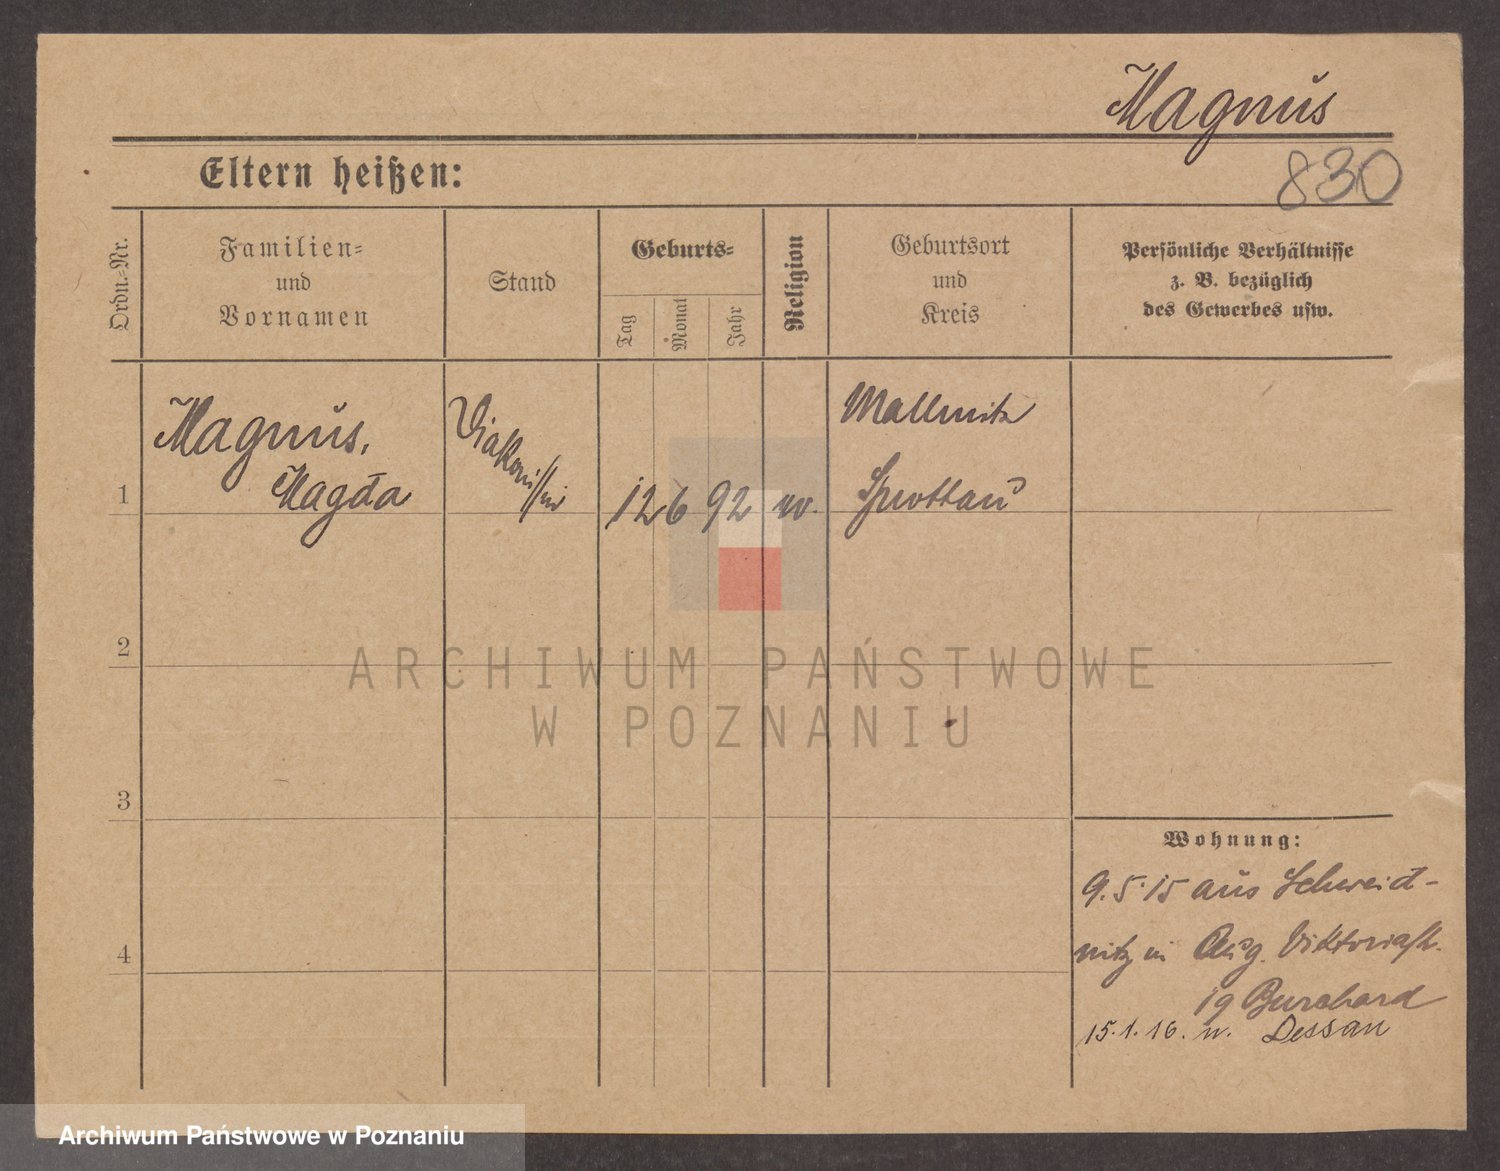 Magnus
830
Eltern heißen:
Ordn.-Nr.
Familien-
und
Vornamen
Stand
Geburts-
Tag
Monat
Jahr
Religion
Geburtsort
und
Kreis
Persönliche Verhältnisse
z. B. bezüglich
des Gewerbes usw.
1
Magnus,
Magda
Diakonissin
12
6
92
ev.
Mallmitz
Sprottau
2
3
4
Wohnung:
9.5.15 aus Schweid-
nitz in Aug. Viktoriastr.
19 Burchard
15.1.16. n. Dessau
ARCHIWUM PAŃSTWOWE
W POZNANIU
Archiwum Państwowe w Poznaniu